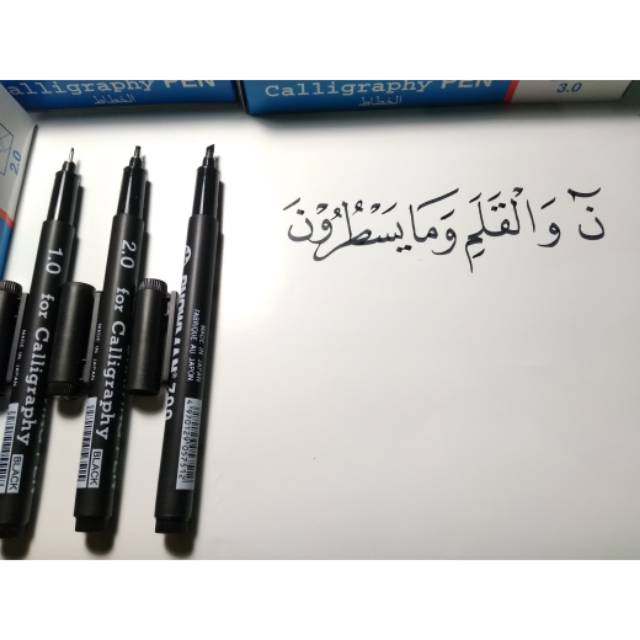 alligraphy PEN
الخطاط
Calligraphy PEN
الخطاط
3.0
2.0
نٓ وَالْقَلَمِ وَمَا يَسْطُرُوْنَ
1.0 for Calligraphy
MADE IN JAPAN
BLACK
2.0 for Calligraphy
MADE IN JAPAN
BLACK
MADE IN JAPAN
FABRIQUE AU JAPON
4 970129 057512